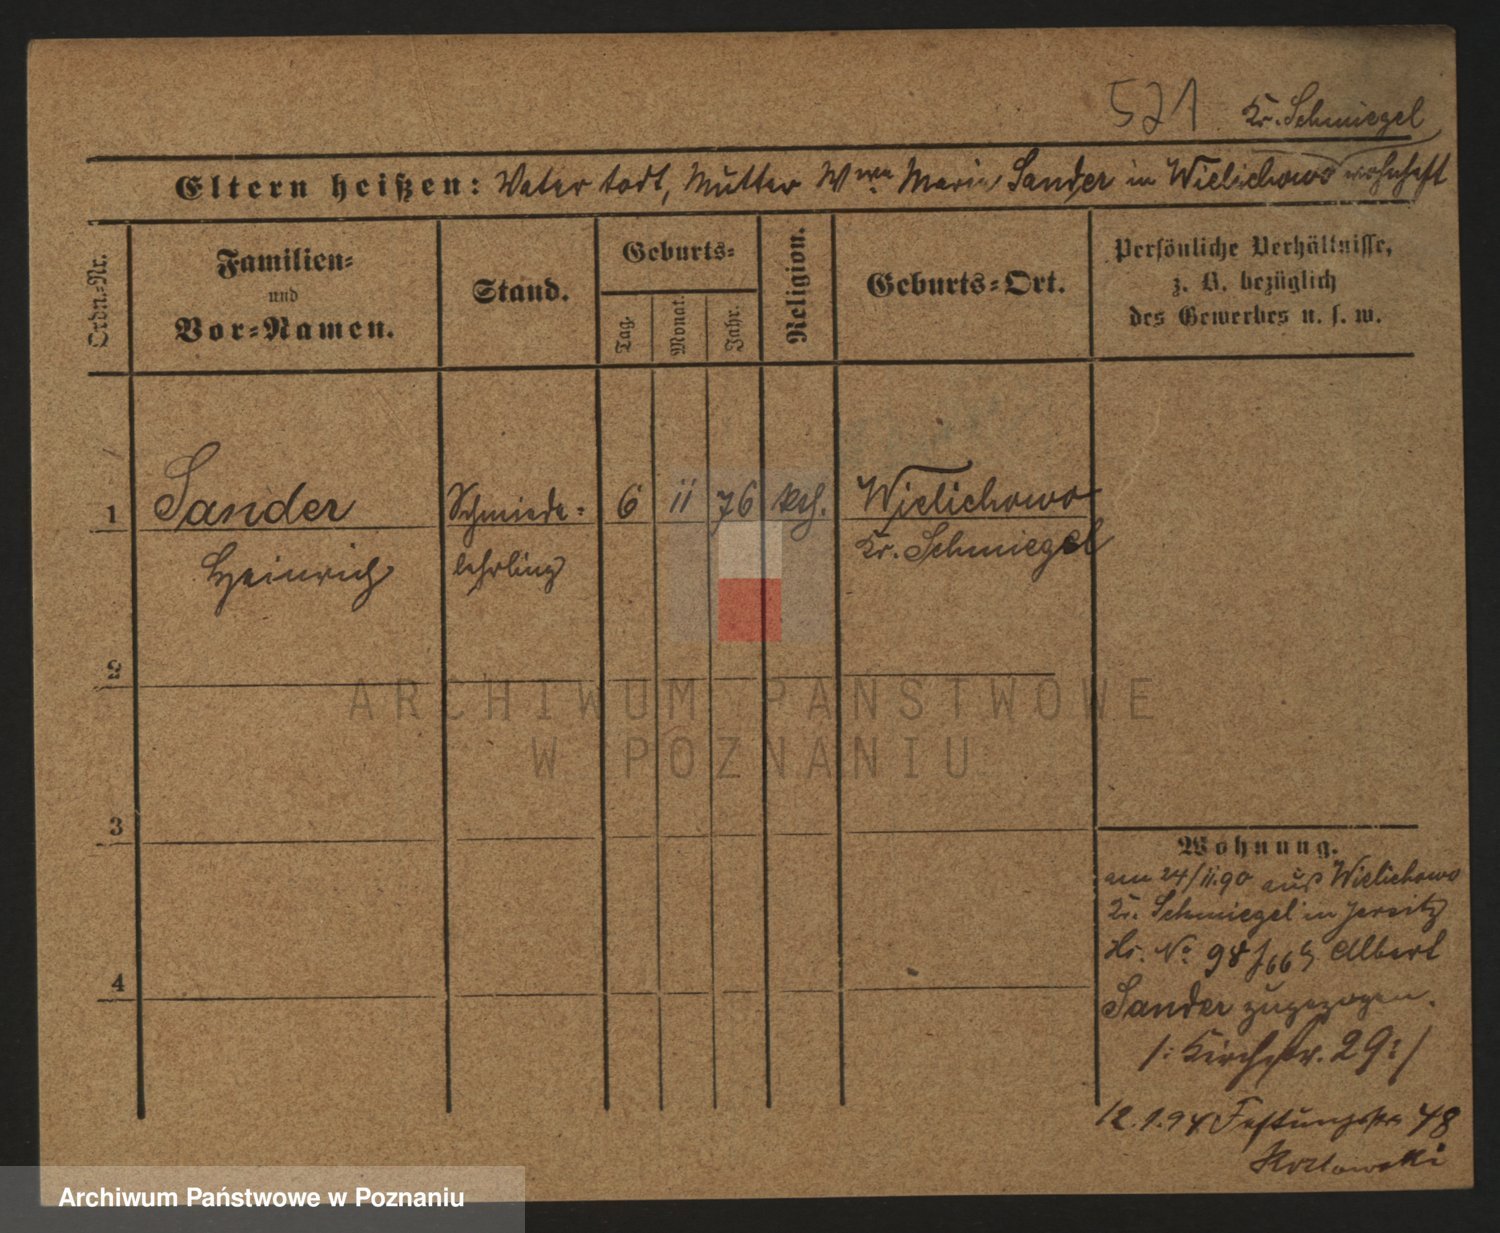 521 Kr. Schmiegel
Eltern heißen: Vater todt, Mutter Wwe. Marie Sander in Wielichowo wohnhaft
Ordn.-Nr.
Familien-
und
Vor-Namen.
Stand.
Geburts-
Tag.
Monat.
Jahr.
Religion.
Geburts-Ort.
Persönliche Verhältnisse,
z. B. bezüglich
des Gewerbes u. s. w.
1 Sander Schmiede- 6 ii 76 kth. Wielichowo
Heinrich lehrling Kr. Schmiegel
2
3
4
Wohnung.
am 24/ii.90 aus Wielichowo
Kr. Schmiegel in Jersitz
Hs. No. 98/66 Albert
Sander zugezogen.
/: Kirchstr. 29 :/
12.1.94 Festungsstr. 48
Kozlowski
ARCHIWUM PAŃSTWOWE
W POZNANIU
Archiwum Państwowe w Poznaniu